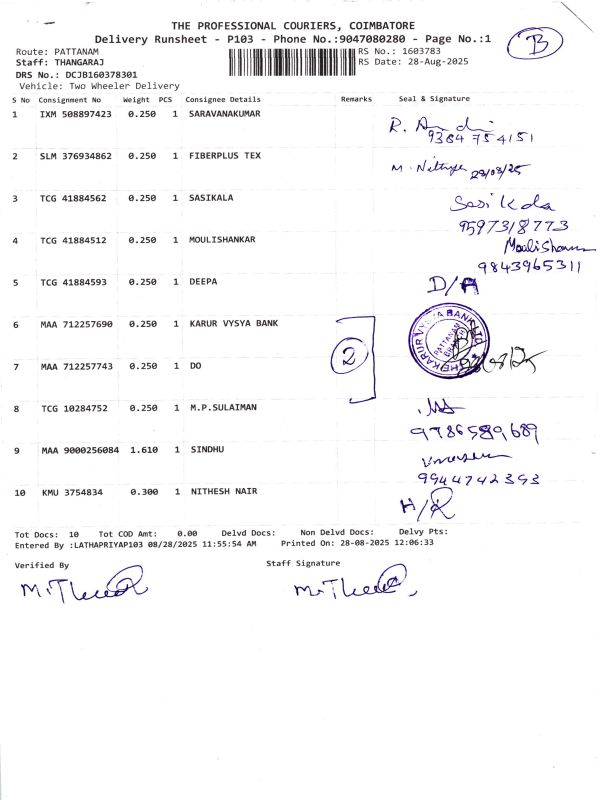 THE PROFESSIONAL COURIERS, COIMBATORE
Delivery Runsheet - P103 - Phone No.:9047080280 - Page No.:1
B
Route: PATTANAM RS No.: 1603783
Staff: THANGARAJ RS Date: 28-Aug-2025
DRS No.: DCJB160378301
Vehicle: Two Wheeler Delivery
S No Consignment No Weight PCS Consignee Details Remarks Seal & Signature
1 IXM 508897423 0.250 1 SARAVANAKUMAR
9384754151
2 SLM 376934862 0.250 1 FIBERPLUS TEX
28/08/25
3 TCG 41884562 0.250 1 SASIKALA Sasikala
9597318773
4 TCG 41884512 0.250 1 MOULISHANKAR
9843965311
5 TCG 41884593 0.250 1 DEEPA D/A
6 MAA 712257690 0.250 1 KARUR VYSYA BANK
THE KARUR VYSYA BANK LTD.
PATTANAM
BRANCH
2
7 MAA 712257743 0.250 1 DO
8 TCG 10284752 0.250 1 M.P.SULAIMAN
9786589689
9 MAA 9000256084 1.610 1 SINDHU
9944742393
10 KMU 3754834 0.300 1 NITHESH NAIR
Tot Docs: 10 Tot COD Amt: 0.00 Delvd Docs: Non Delvd Docs: Delvy Pts:
Entered By :LATHAPRIYAP103 08/28/2025 11:55:54 AM Printed On: 28-08-2025 12:06:33
Verified By Staff Signature